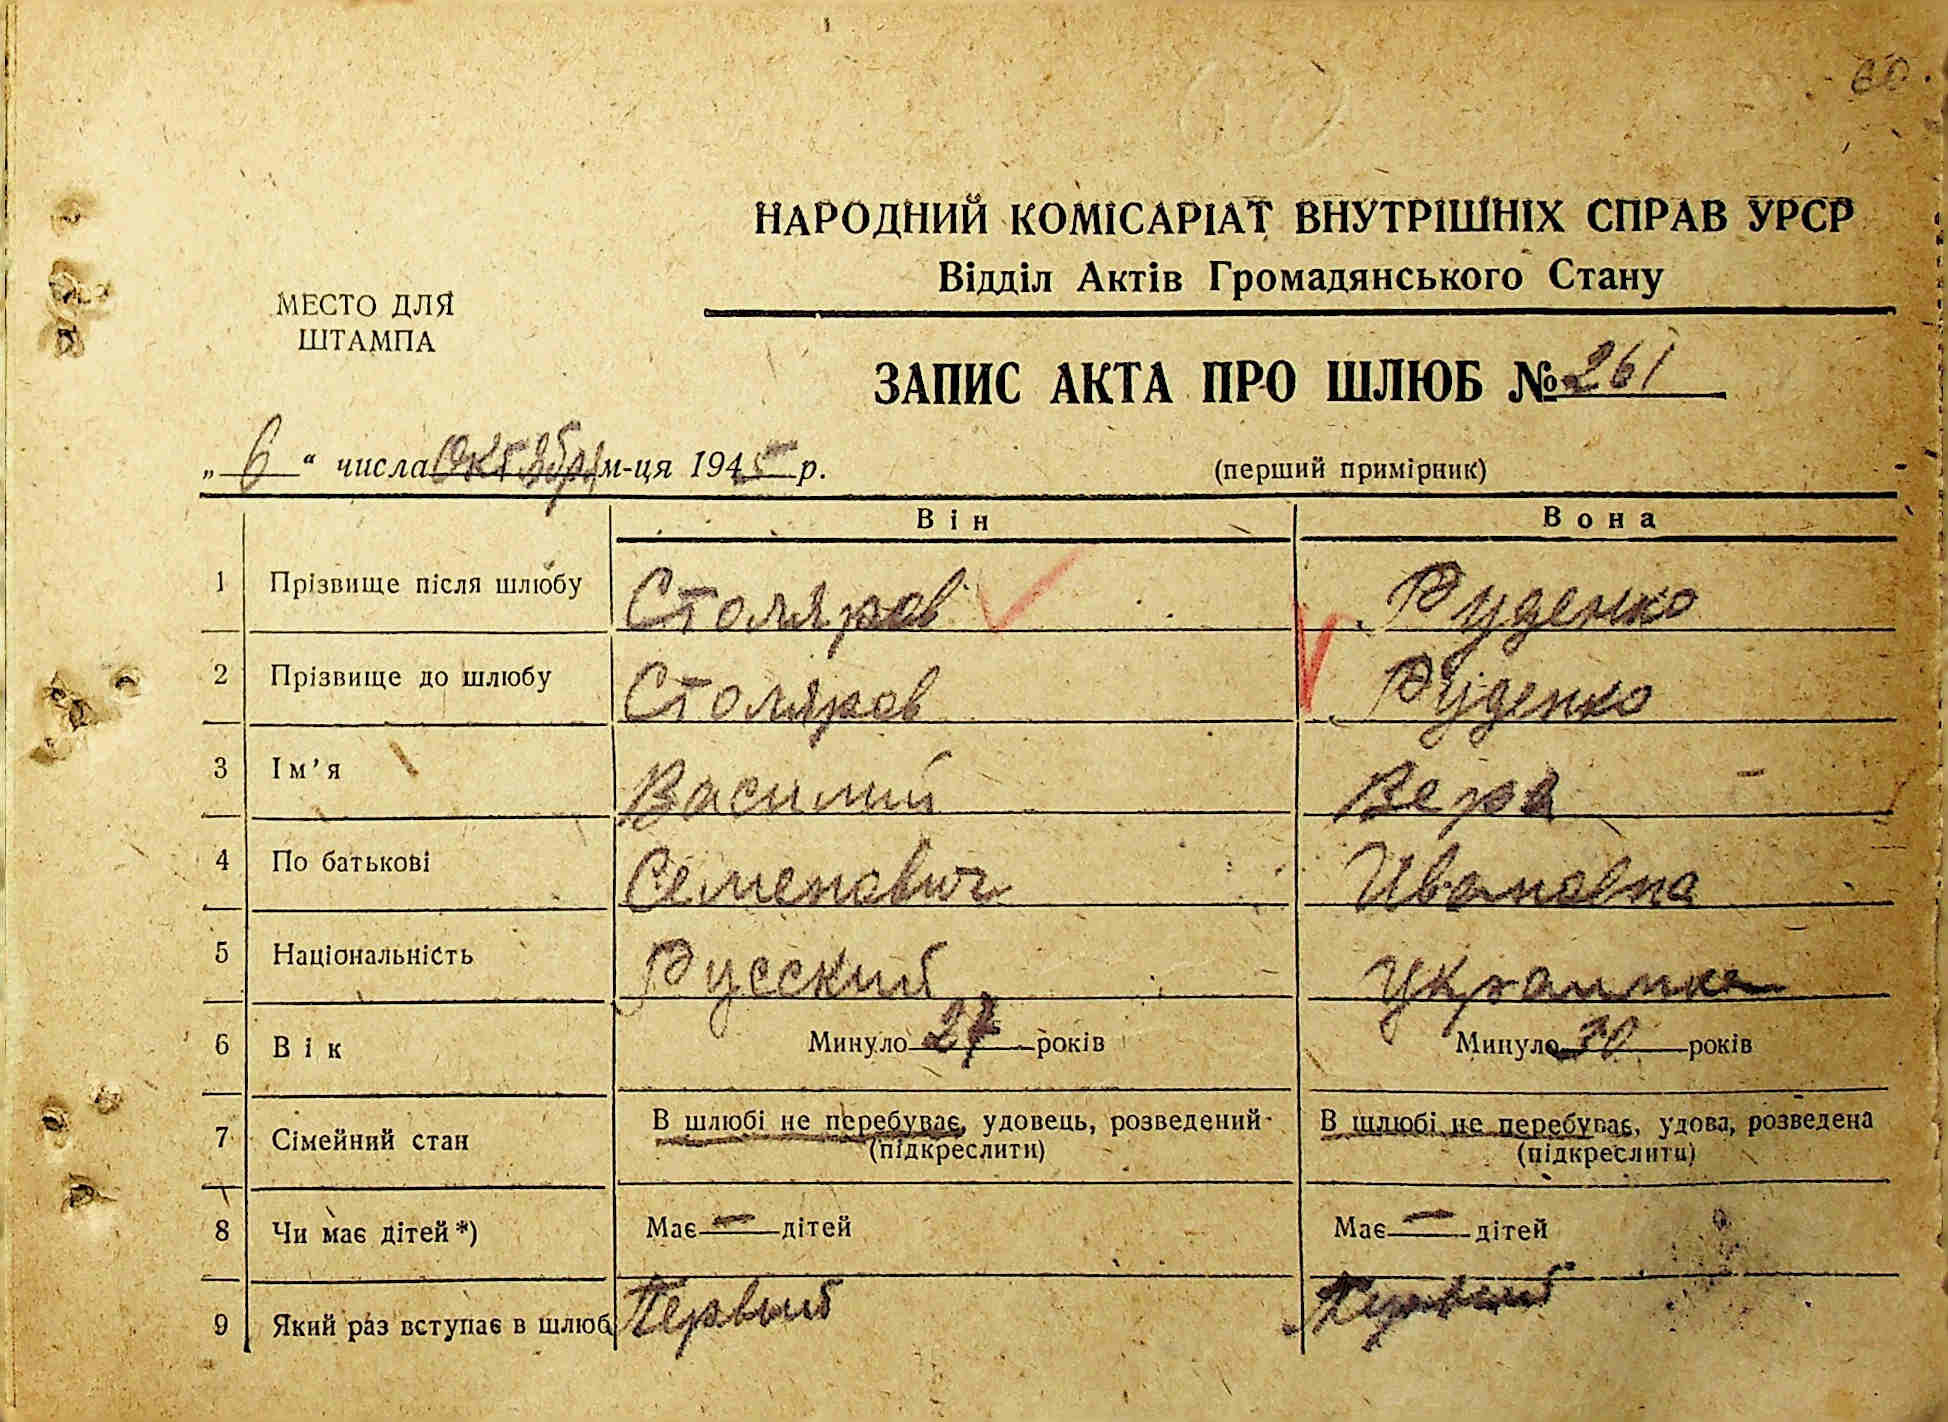 60.
НАРОДНИЙ КОМІСАРІАТ ВНУТРІШНІХ СПРАВ УРСР
Відділ Актів Громадянського Стану
МЕСТО ДЛЯ
ШТАМПА
ЗАПИС АКТА ПРО ШЛЮБ № 261
„ 6 “ числа Октября м-ця 1945 р.
(перший примірник)
Він Вона
1 Прізвище після шлюбу Столяров Руденко
2 Прізвище до шлюбу Столяров Руденко
3 Ім’я Василий Вера
4 По батькові Семенович Ивановна
5 Національність Русский Украинка
6 Вік Минуло 27 років Минуло 30 років
7 Сімейний стан В шлюбі не перебуває, удовець, розведений В шлюбі не перебуває, удова, розведена
(підкреслити) (підкреслити)
8 Чи має дітей *) Має — дітей Має — дітей
9 Який раз вступає в шлюб Первый Первый